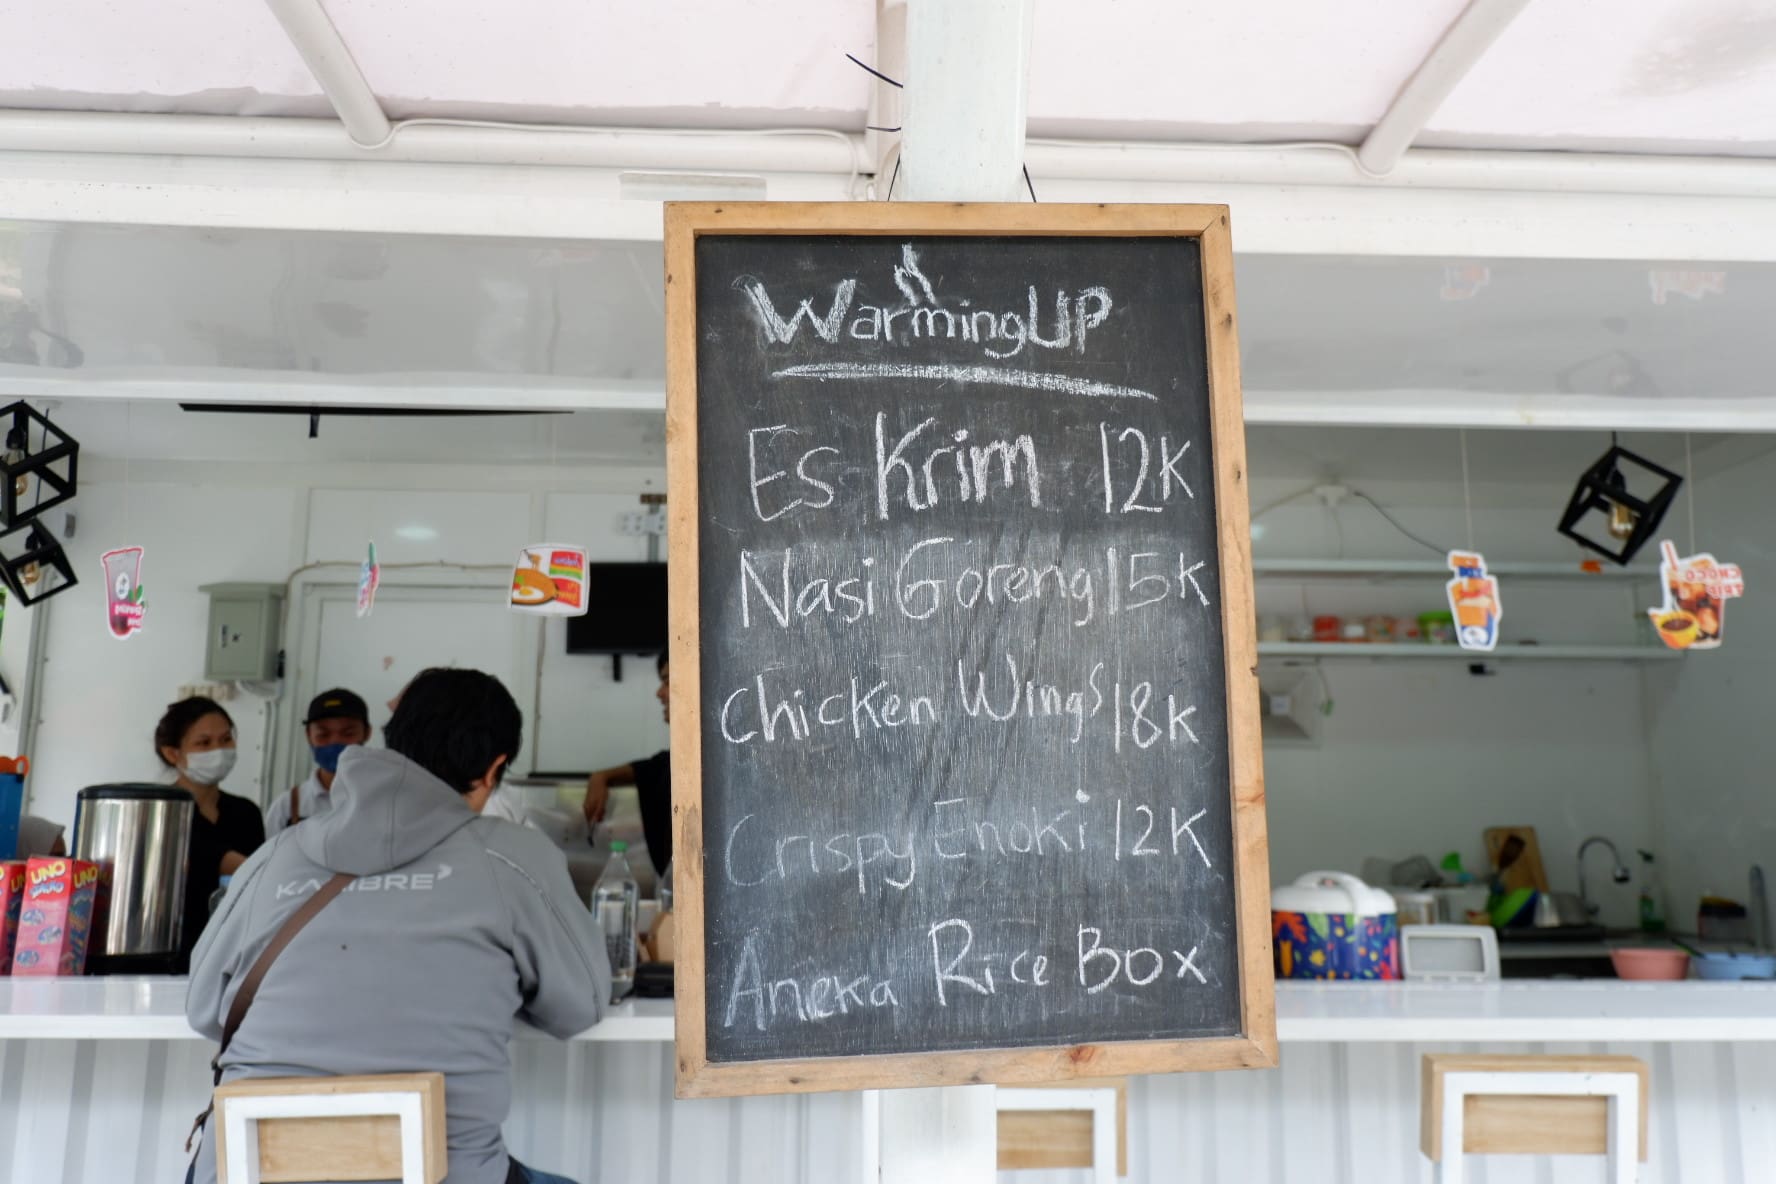 WarmingUP
Es Krim 12K
Nasi Goreng 15K
Chicken Wings 18K
Crispy Enoki 12K
Aneka Rice Box
KALIBRE
UNO
UNO
CHOCO